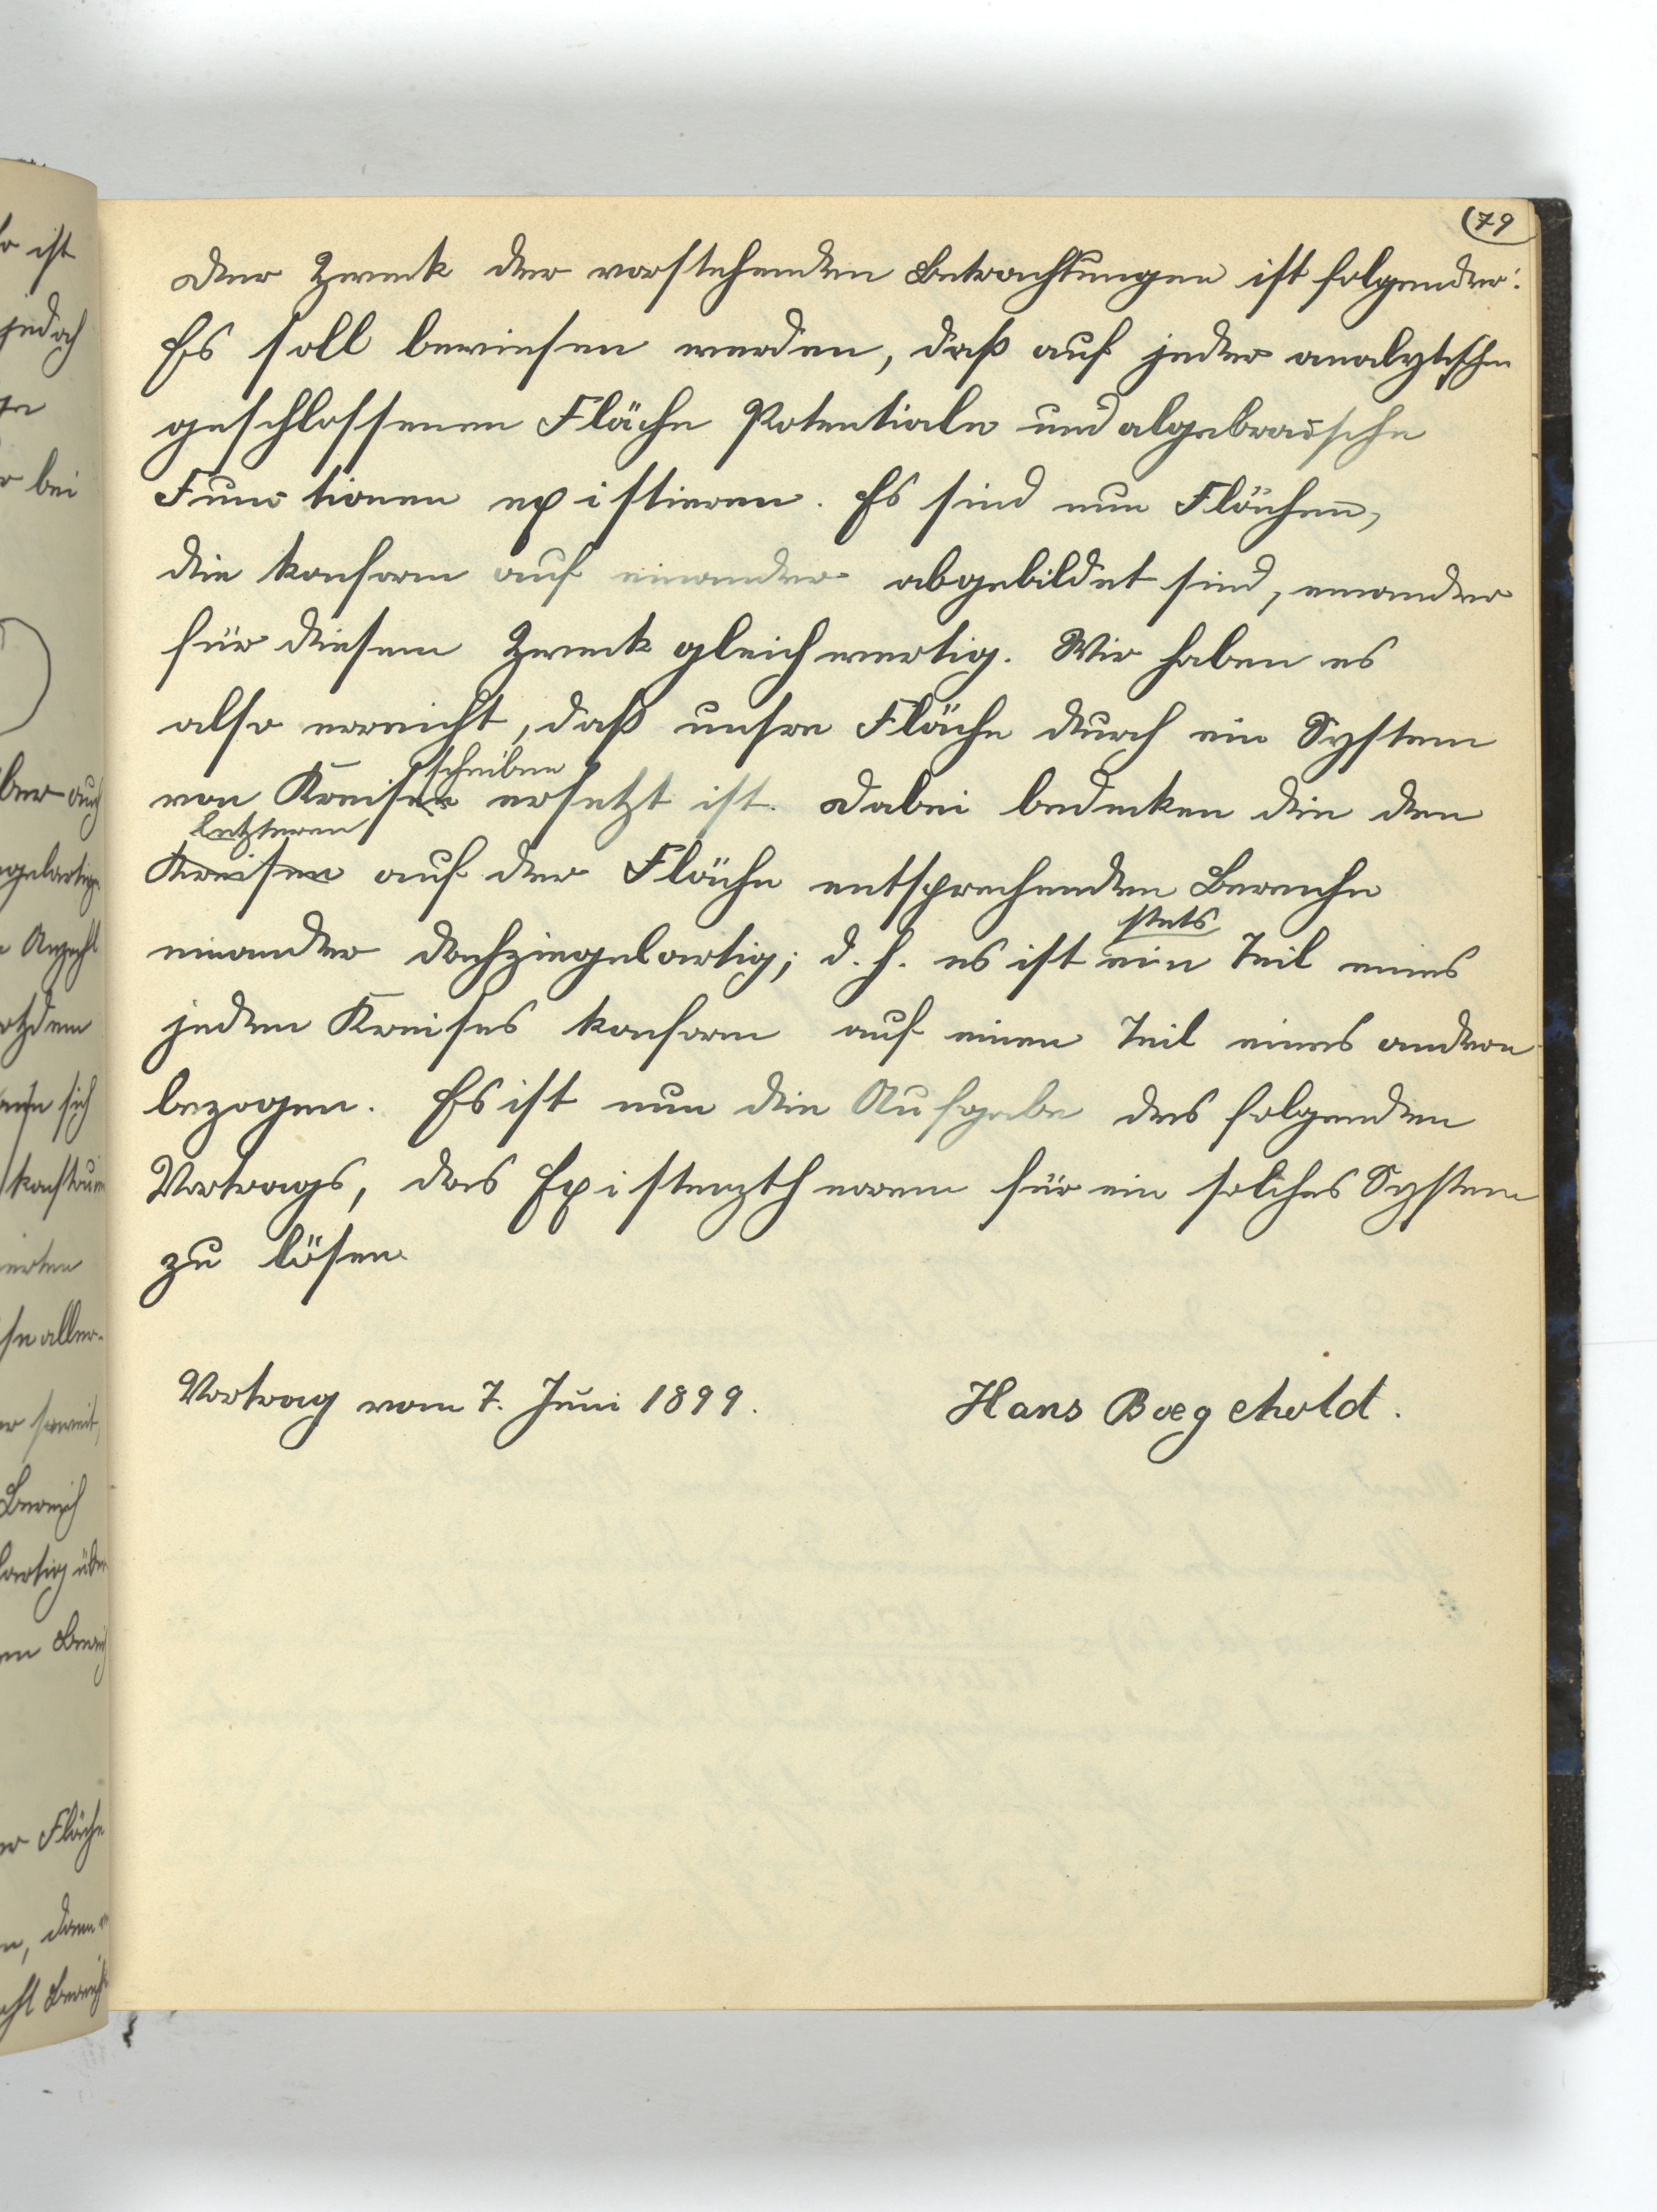 79
Der Zweck der vorstehenden Betrachtungen ist folgender:
Es soll bewiesen werden, daß auf jeder analytischen
geschlossenen Fläche Potentiale und algebraische
Functionen existieren. Es sind nun Flächen,
die konform auf einander abgebildet sind, einander
für diesen Zweck gleichwertig. Wir haben es
also erreicht, daß unsre Fläche durch ein System
scheiben
von Kreisen ersetzt ist. Dabei bedecken die den
letzteren
Kreisen auf der Fläche entsprechenden Bereiche
stets
einander dachziegelartig; d. h. es ist ein Teil eines
jeden Kreises konform auf einen Teil eines andren
bezogen. Es ist nun die Aufgabe des folgenden
Vortrags, das Existenztheorem für ein solches System
zu lösen.
Vortrag vom 7. Juni 1899. Hans Boegehold.
ist
jedoch
bei
aber auch
Anzahl
trotzdem
sich
aller-
somit,
Bereich
Fläche